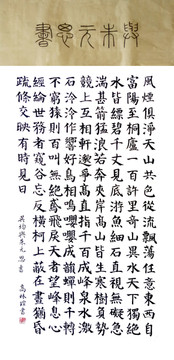 與朱元思書
風煙俱淨天山共色從流飄蕩任意東西自
富陽至桐廬一百許里奇山異水天下獨絕
水皆縹碧千丈見底游魚細石直視無礙急
湍甚箭猛浪若奔夾岸高山皆生寒樹負勢
競上互相軒邈爭高直指千百成峰泉水激
石泠泠作響好鳥相鳴嚶嚶成韻蟬則千轉
不窮猿則百叫無絕鳶飛戾天者望峰息心
經綸世務者窺谷忘反橫柯上蔽在晝猶昏
疏條交映有時見日
吴均與朱元思書